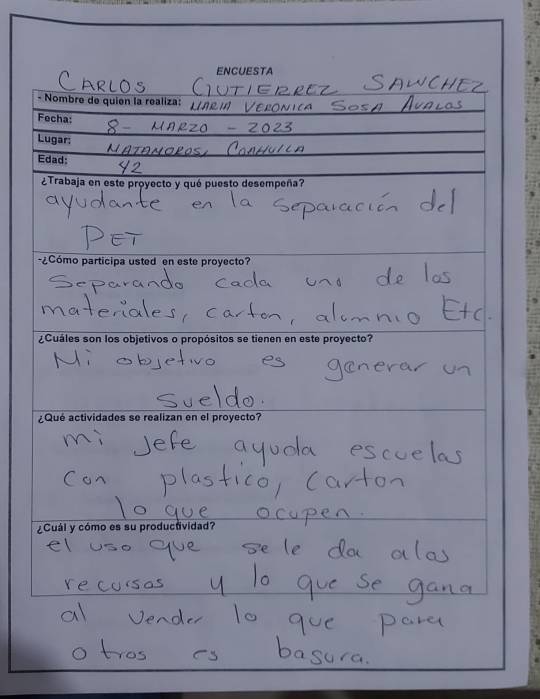 ENCUESTA
CARLOS GUTIERREZ SANCHEZ
- Nombre de quien la realiza: MARIA VERONICA SOSA AVALOS
Fecha: 8 - MARZO - 2023
Lugar: MATAMOROS, COAHUILA
Edad: 42
¿Trabaja en este proyecto y qué puesto desempeña?
ayudante en la separación del
PET
-¿Cómo participa usted en este proyecto?
Separando cada uno de los
materiales, carton, alumnio Etc.
¿Cuáles son los objetivos o propósitos se tienen en este proyecto?
Mi objetivo es generar un
sueldo.
¿Qué actividades se realizan en el proyecto?
mi Jefe ayuda escuelas
con plastico, carton
lo que ocupen.
¿Cuál y cómo es su productividad?
el uso que se le da alos
recursos y lo que se gana
al vender lo que para
otros es basura.